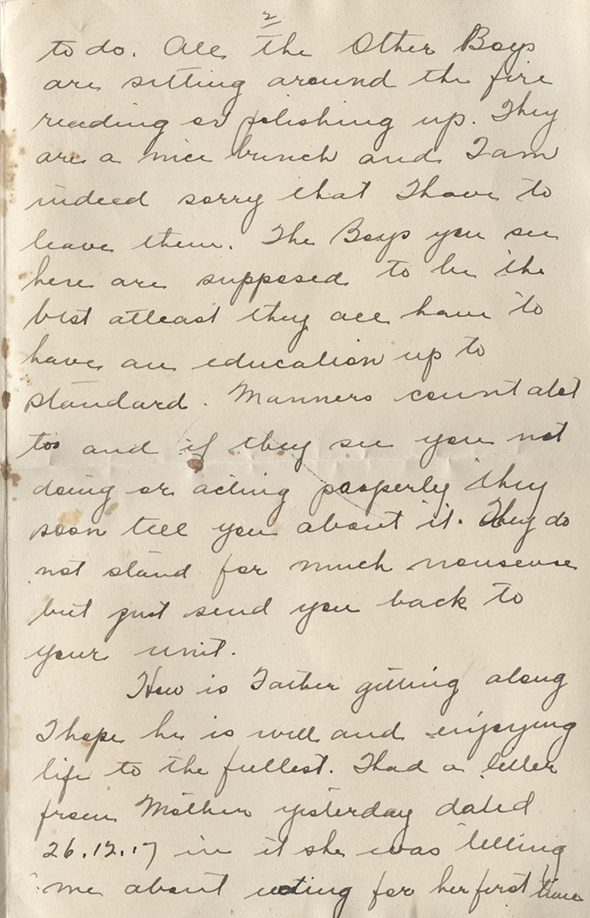 2
to do. All the Other Boys
are sitting around the fire
reading or polishing up. They
are a nice bunch and I am
indeed sorry that I have to
leave them. The Boys you see
here are supposed to be the
best atleast they all have to
have an education up to
standard. Manners count alot
too and if they see you not
doing or acting properly they
soon tell you about it. They do
not stand for much nonsense
but just send you back to
your unit.
How is Father getting along
I hope he is well and enjoying
life to the fullest. I had a letter
from Mother yesterday dated
26.12.17 in it she was telling
me about voting for her first time